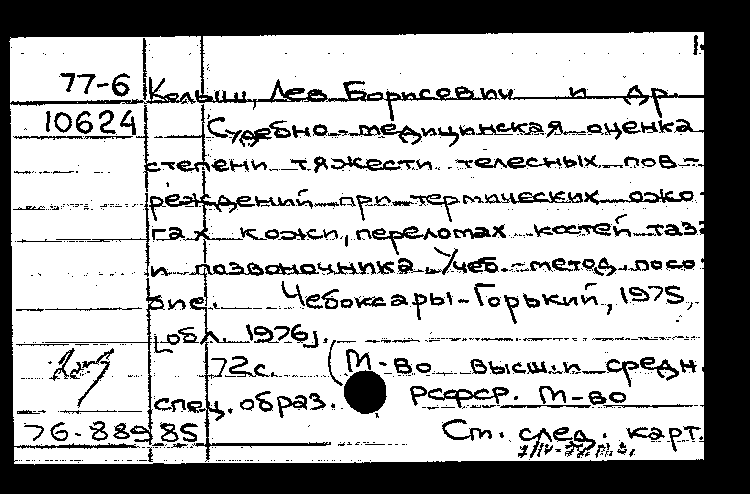 77-6 Кельин, Лев Борисович и др.
10624 Судебно-медицинская оценка
степени тяжести телесных пов-
реждений при термических ожо-
гах кожи, переломах костей таза
и позвоночника. Учеб.-метод. посо-
бие. Чебоксары-Горький, 1975,
[обл. 1976].
72с. (М-во высш. и средн.
спец. образ. РСФСР. М-во
76-88985 Ст. след. карт.